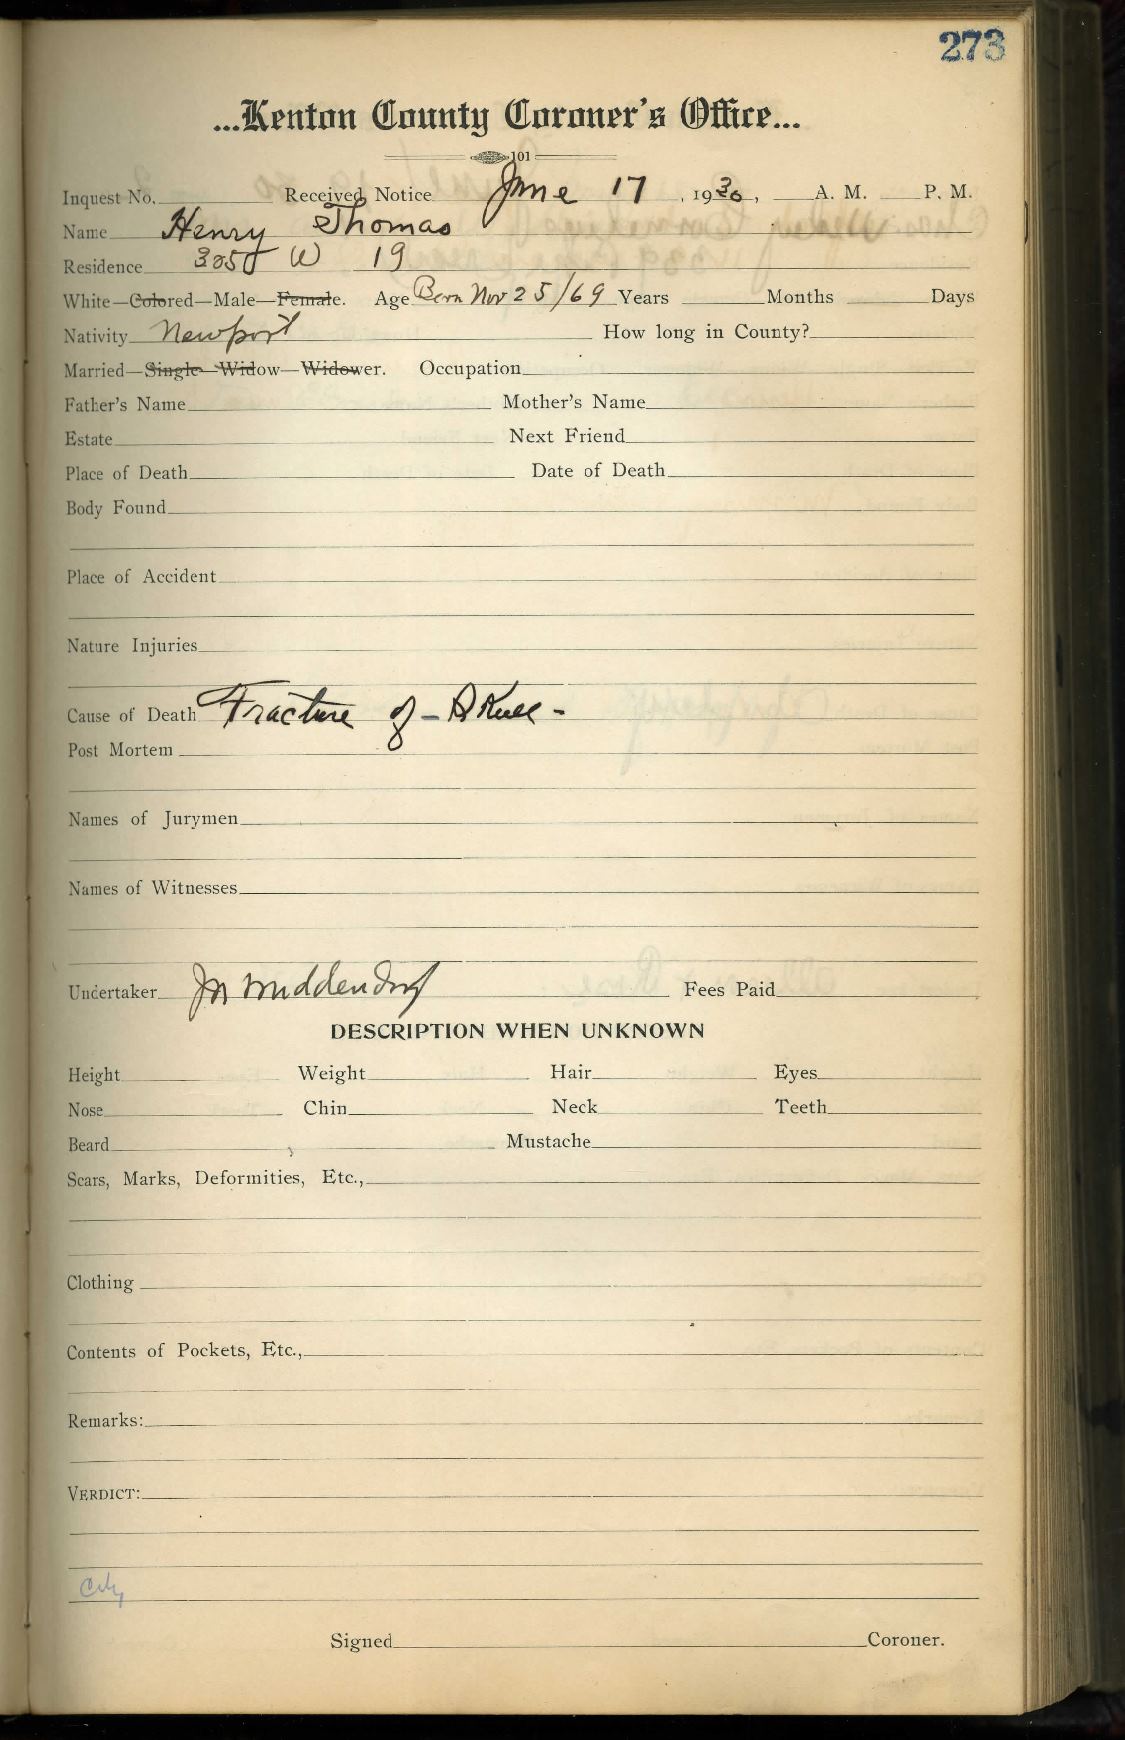 273
...Kenton County Coroner's Office...
101
Inquest No. Received Notice June 17, 1930, A. M. P. M.
Name Henry Thomas
Residence W 19
White—Colored—Male—Female. Age Born Nov 25/69 Years Months Days
Nativity Newport How long in County?
Married—Single—Widow—Widower. Occupation
Father's Name Mother's Name
Estate Next Friend
Place of Death Date of Death
Body Found
Place of Accident
Nature Injuries
Cause of Death Fracture of - Skull -
Post Mortem
Names of Jurymen
Names of Witnesses
Undertaker Middendorf Fees Paid
DESCRIPTION WHEN UNKNOWN
Height Weight Hair Eyes
Nose Chin Neck Teeth
Beard Mustache
Scars, Marks, Deformities, Etc.,
Clothing
Contents of Pockets, Etc.,
Remarks:
VERDICT:
City
Signed Coroner.